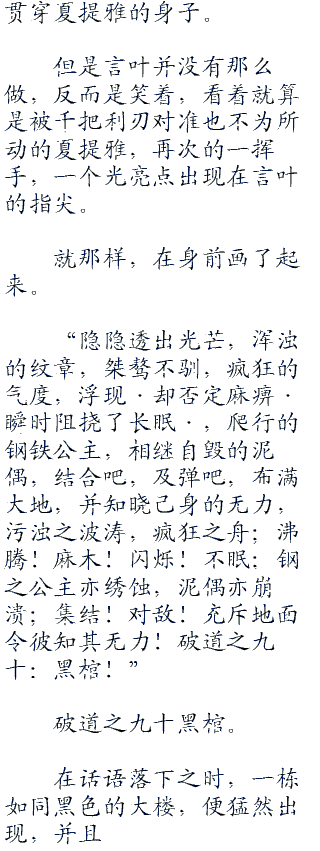 贯穿夏提雅的身子。
但是言叶并没有那么
做，反而是笑着，看着就算
是被千把利刃对准也不为所
动的夏提雅，再次的一挥
手，一个光亮点出现在言叶
的指尖。
就那样，在身前画了起
来。
“隐隐透出光芒，浑浊
的纹章，桀骜不驯，疯狂的
气度，浮现·却否定麻痹·
瞬时阻挠了长眠·，爬行的
钢铁公主，相继自毁的泥
偶，结合吧，及弹吧，布满
大地，并知晓己身的无力，
污浊之波涛，疯狂之舟；沸
腾！麻木！闪烁！不眠；钢
之公主亦绣蚀，泥偶亦崩
溃；集结！对敌！充斥地面
令彼知其无力！破道之九
十：黑棺！”
破道之九十黑棺。
在话语落下之时，一栋
如同黑色的大楼，便猛然出
现，并且